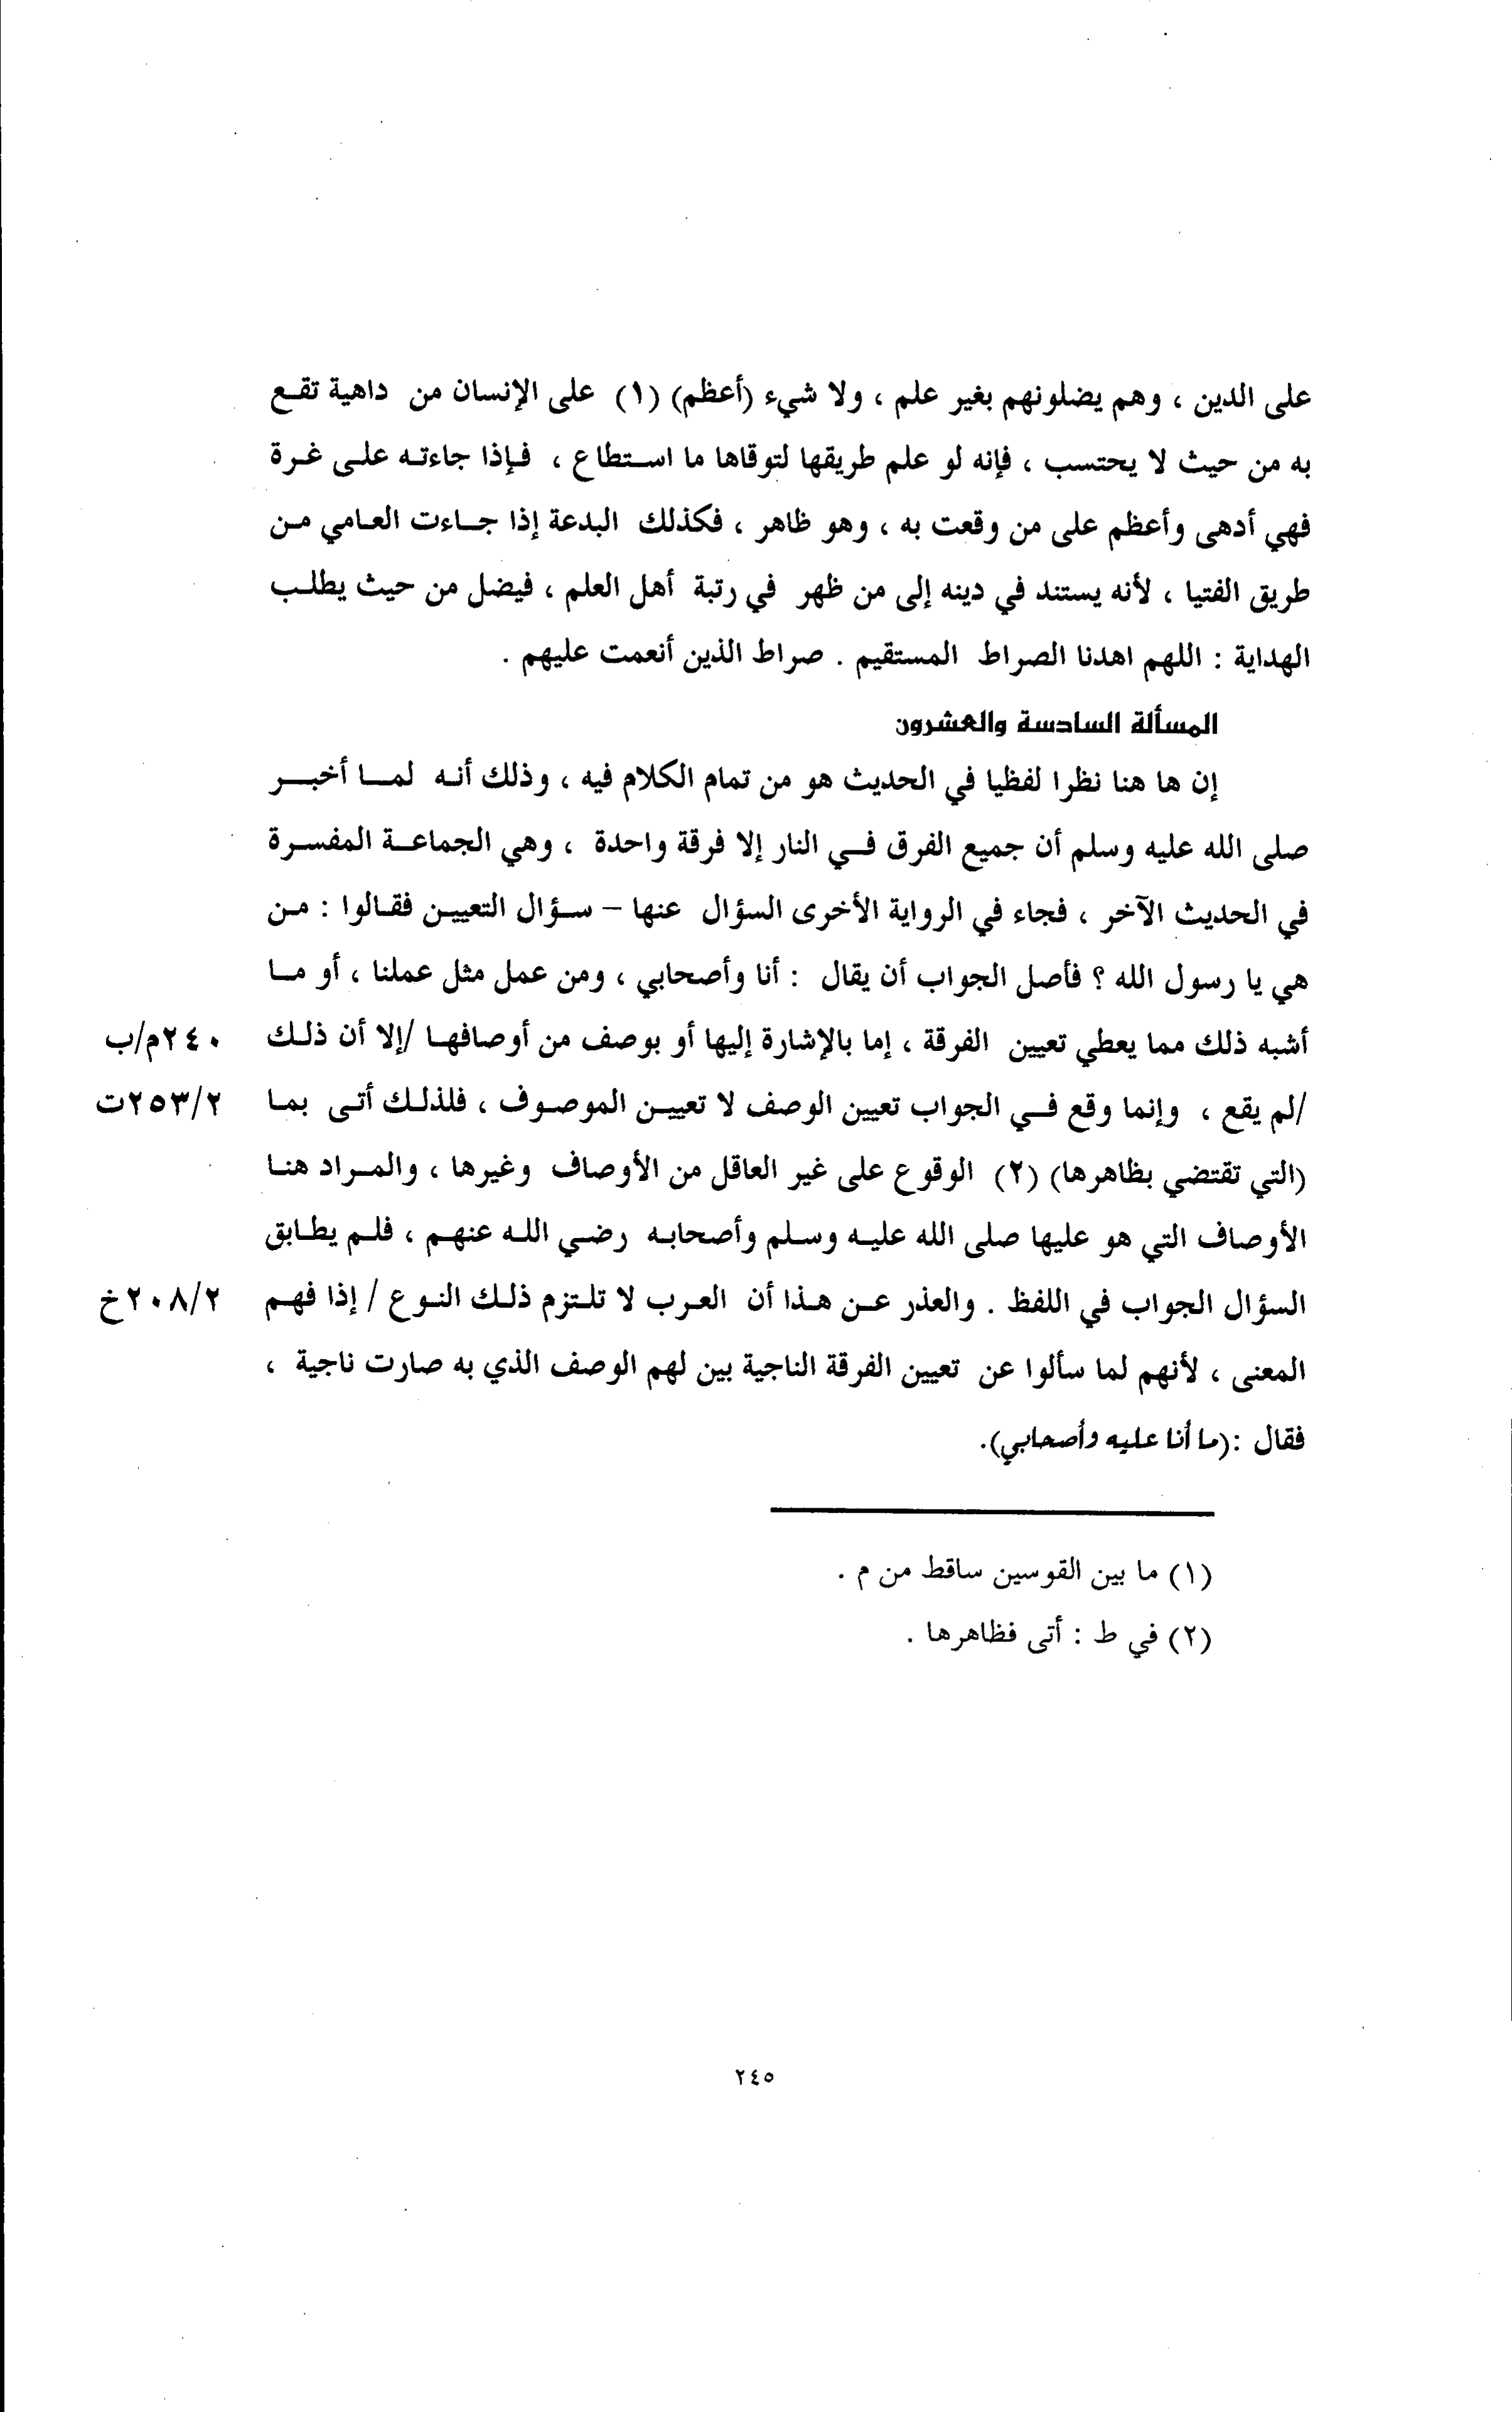 على الدين ، وهم يضلونهم بغير علم ، ولا شيء (أعظم) (١) على الإنسان من داهية تقع
به من حيث لا يحتسب ، فإنه لو علم طريقها لتوقاها ما استطاع ، فإذا جاءته على غرة
فهي أدهى وأعظم على من وقعت به ، وهو ظاهر ، فكذلك البدعة إذا جاءت العامي من
طريق الفتيا ، لأنه يستند في دينه إلى من ظهر في رتبة أهل العلم ، فيضل من حيث يطلب
الهداية : اللهم اهدنا الصراط المستقيم . صراط الذين أنعمت عليهم .
المسألة السادسة والعشرون
إن ها هنا نظرا لفظيا في الحديث هو من تمام الكلام فيه ، وذلك أنه لما أخبر
صلى الله عليه وسلم أن جميع الفرق في النار إلا فرقة واحدة ، وهي الجماعة المفسرة
في الحديث الآخر ، فجاء في الرواية الأخرى السؤال عنها – سؤال التعيين فقالوا : من
هي يا رسول الله ؟ فأصل الجواب أن يقال : أنا وأصحابي ، ومن عمل مثل عملنا ، أو ما
أشبه ذلك مما يعطي تعيين الفرقة ، إما بالإشارة إليها أو بوصف من أوصافها /إلا أن ذلك ٢٤٠م/ب
/لم يقع ، وإنما وقع في الجواب تعيين الوصف لا تعيين الموصوف ، فلذلك أتى بما ٢٥٣/٢ت
(التي تقتضي بظاهرها) (٢) الوقوع على غير العاقل من الأوصاف وغيرها ، والمراد هنا
الأوصاف التي هو عليها صلى الله عليه وسلم وأصحابه رضي الله عنهم ، فلم يطابق
السؤال الجواب في اللفظ . والعذر عن هذا أن العرب لا تلتزم ذلك النوع / إذا فهم ٢٠٨/٢خ
المعنى ، لأنهم لما سألوا عن تعيين الفرقة الناجية بين لهم الوصف الذي به صارت ناجية ،
فقال :(ما أنا عليه وأصحابي).
(١) ما بين القوسين ساقط من م .
(٢) في ط : أتى فظاهرها .
٢٤٥